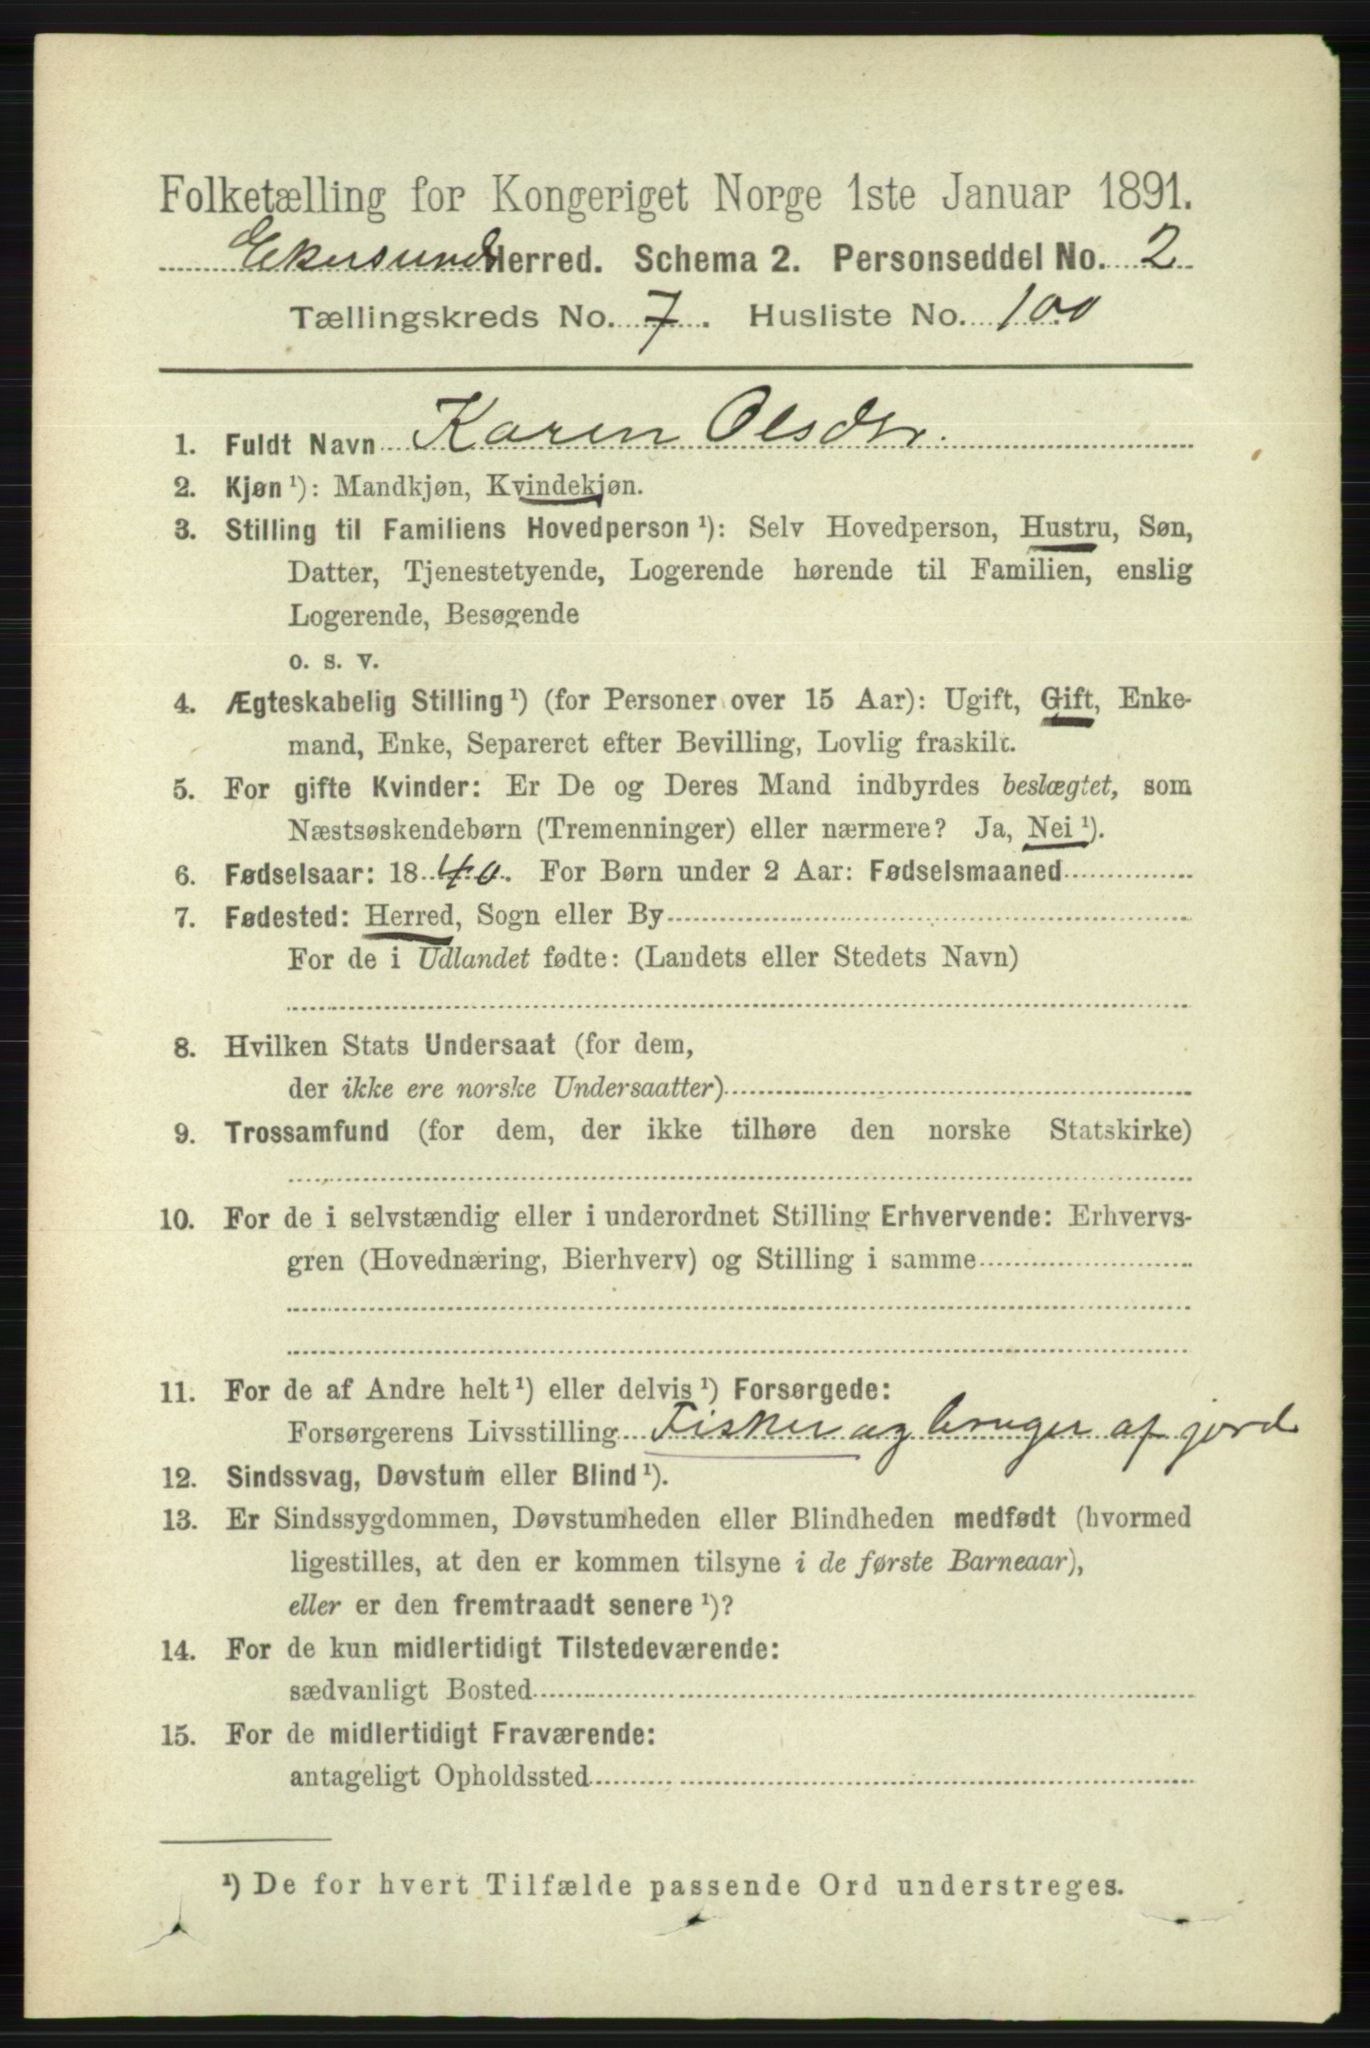 Folketælling for Kongeriget Norge 1ste Januar 1891.
Ekersund Herred. Schema 2. Personseddel No. 2
Tællingskreds No. 7. Husliste No. 100
1. Fuldt Navn Karen Olsdtr.
2. Kjøn ¹): Mandkjøn, Kvindekjøn.
3. Stilling til Familiens Hovedperson ¹): Selv Hovedperson, Hustru, Søn,
Datter, Tjenestetyende, Logerende hørende til Familien, enslig
Logerende, Besøgende
o. s. v.
4. Ægteskabelig Stilling ¹) (for Personer over 15 Aar): Ugift, Gift, Enke-
mand, Enke, Separeret efter Bevilling, Lovlig fraskilt.
5. For gifte Kvinder: Er De og Deres Mand indbyrdes beslægtet, som
Næstsøskendebørn (Tremenninger) eller nærmere? Ja, Nei ¹).
6. Fødselsaar: 1840. For Børn under 2 Aar: Fødselsmaaned
7. Fødested: Herred, Sogn eller By
For de i Udlandet fødte: (Landets eller Stedets Navn)
8. Hvilken Stats Undersaat (for dem,
der ikke ere norske Undersaatter)
9. Trossamfund (for dem, der ikke tilhøre den norske Statskirke)
10. For de i selvstændig eller i underordnet Stilling Erhvervende: Erhvervs-
gren (Hovednæring, Bierhverv) og Stilling i samme
11. For de af Andre helt ¹) eller delvis ¹) Forsørgede:
Forsørgerens Livsstilling Fisker og bruger af jord
12. Sindssvag, Døvstum eller Blind ¹).
13. Er Sindssygdommen, Døvstumheden eller Blindheden medfødt (hvormed
ligestilles, at den er kommen tilsyne i de første Barneaar),
eller er den fremtraadt senere ¹)?
14. For de kun midlertidigt Tilstedeværende:
sædvanligt Bosted
15. For de midlertidigt Fraværende:
antageligt Opholdssted
¹) De for hvert Tilfælde passende Ord understreges.